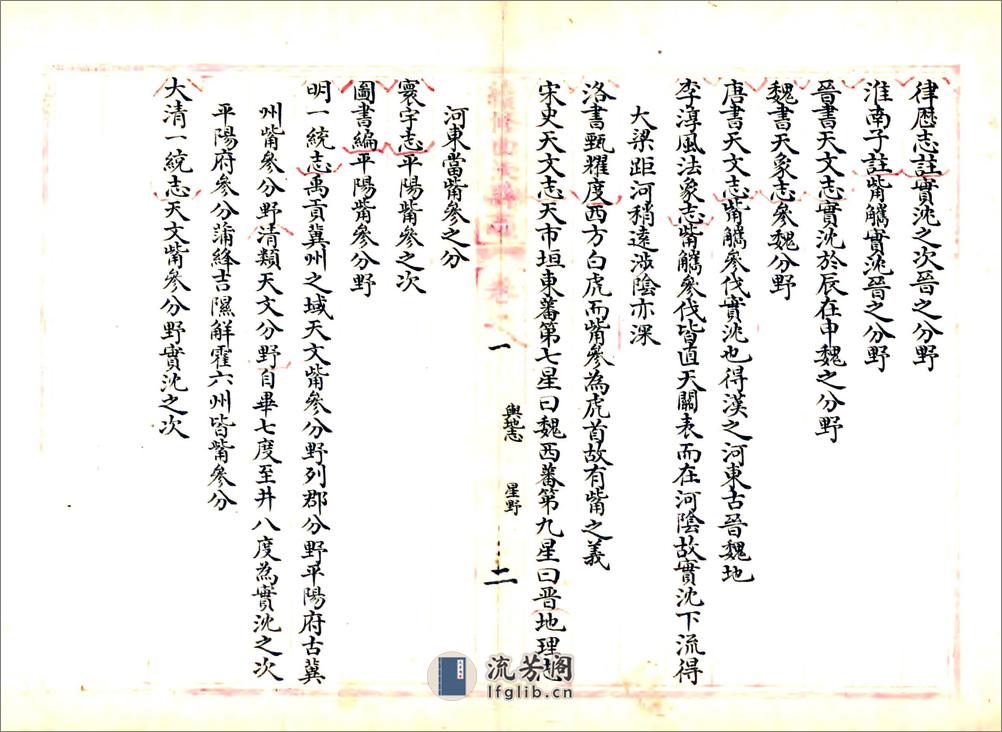 律歷志註實沈之次晉之分野
淮南子註觜觿實沈晉之分野
晉書天文志實沈於辰在申魏之分野
魏書天象志參魏分野
唐書天文志觜觿參伐實沈也得漢之河東古晉魏地
李淳風法象志觜觿參伐皆直天關表而在河陰故實沈下流得
大梁距河稍遠涉陰亦深
洛書甄耀度西方白虎而觜參為虎首故有觜之義
宋史天文志天市垣東蕃第七星曰魏西蕃第九星曰晋地理志
卷
一
輿地志
星野
二
河東當觜參之分
寰宇志平陽觜參之次
圖書編平陽觜參分野
明一統志禹貢冀州之域天文觜參分野列郡分野平陽府古冀
州觜參分野清類天文分野自畢七度至井八度為實沈之次
平陽府參分蒲絳吉隰解霍六州皆觜參分
大清一統志天文觜參分野實沈之次
流芳閣
lfglib.cn